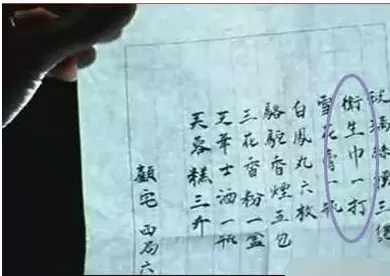 玻璃絲襪三
衛生巾一打
雪花膏一瓶
白鳳丸六枚
駱駝香煙五包
三花香粉一盒
華士酒一瓶
芙蓉糕三斤
顧宅 西局六